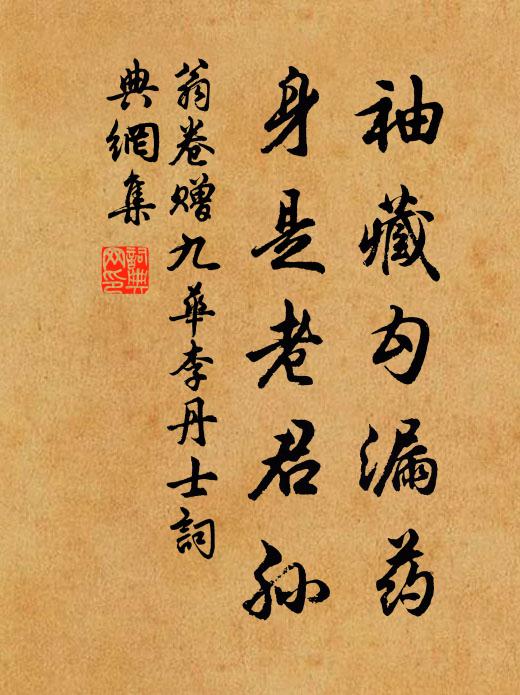 袖藏勾漏药
身是老君孙
翁卷赠九华李丹士詞
典網集
詞典網印